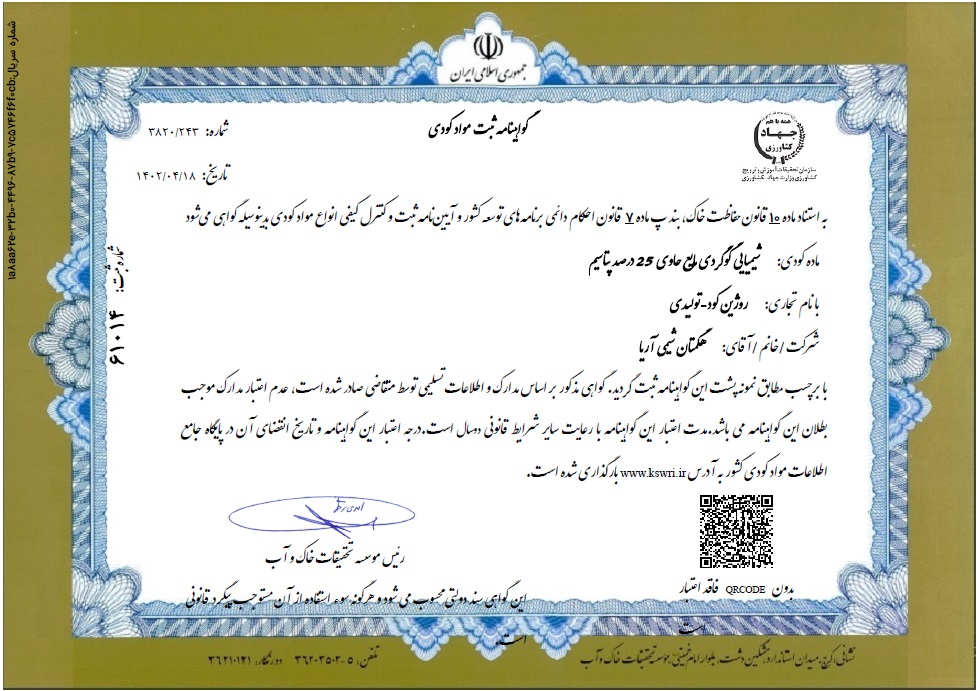 جمهوری اسلامی ایران
گواهینامه ثبت مواد کودی
شماره: ۳۸۲۰/۲۴۳
تاریخ: ۱۴۰۲/۰۴/۱۸
همه با هم
جهاد
کشاورزی
سازمان تحقیقات، آموزش و ترویج
کشاورزی وزارت جهاد کشاورزی
به استناد ماده ۱۰ قانون حفاظت خاک، بند پ ماده ۷ قانون احکام دائمی برنامه های توسعه کشور و آیین نامه ثبت و کنترل کیفی انواع مواد کودی بدینوسیله گواهی می شود
ماده کودی: شیمیایی گوگردی مایع حاوی 25 درصد پتاسیم
با نام تجاری: روژین کود-تولیدی
شرکت/خانم/آقای: هگمتان شیمی آریا
با برچسب مطابق نمونه پشت این گواهینامه ثبت گردید. گواهی مذکور بر اساس مدارک و اطلاعات تسلیمی توسط متقاضی صادر شده است، عدم اعتبار مدارک موجب
بطلان این گواهینامه می باشد. مدت اعتبار این گواهینامه با رعایت سایر شرایط قانونی دوسال است. درجه اعتبار این گواهینامه و تاریخ انقضای آن در پایگاه جامع
اطلاعات مواد کودی کشور به آدرس www.kswri.ir بارگذاری شده است.
رئیس موسسه تحقیقات خاک و آب
بدون QRCODE فاقد اعتبار است
این گواهی سند دولتی محسوب می شود و هرگونه سوء استفاده از آن مستوجب پیگرد قانونی
است.
نشانی: کرج، میدان استاندارد، مشکین دشت، بلوار امام خمینی، موسسه تحقیقات خاک و آب
تلفن: ۵-۳۶۲۰۳۵۰۲ دورنگار: ۳۶۲۱۰۱۲۱
شماره ثبت: ۶۱۰۱۴